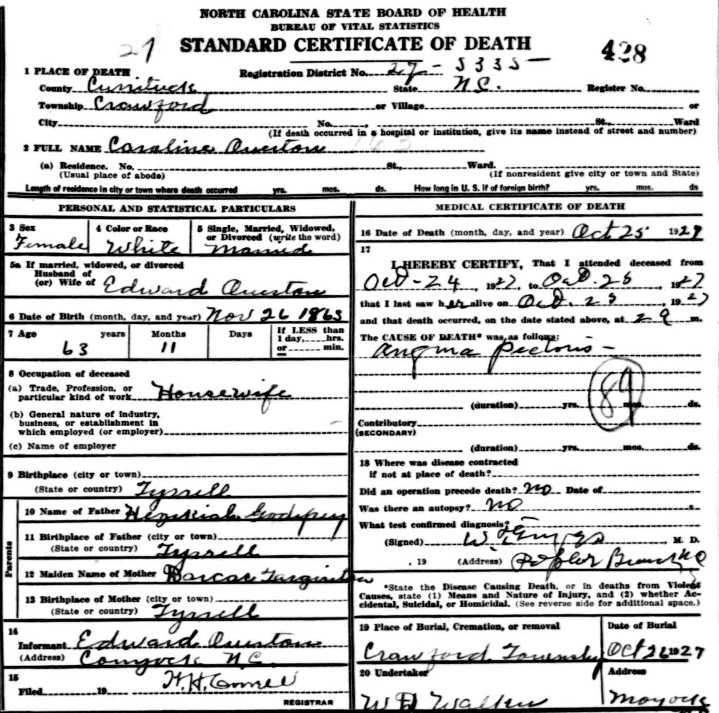 NORTH CAROLINA STATE BOARD OF HEALTH
BUREAU OF VITAL STATISTICS
27 STANDARD CERTIFICATE OF DEATH 428
1 PLACE OF DEATH Registration District No. 27-5335-
County Currituck State N.C. Register No.
Township Crawford or Village or
City No. St., Ward
(If death occurred in a hospital or institution, give its name instead of street and number)
2 FULL NAME Caroline Owston
(a) Residence. No. St., Ward.
(Usual place of abode) (If nonresident give city or town and State)
Length of residence in city or town where death occurred yrs. mos. ds. How long in U. S. if of foreign birth? yrs. mos. ds
PERSONAL AND STATISTICAL PARTICULARS
3 Sex 4 Color or Race 5 Single, Married, Widowed,
or Divorced (write the word)
Female White Married
5a If married, widowed, or divorced
Husband of
(or) Wife of Edward Owston
6 Date of Birth (month, day, and year) Nov 26 1863
7 Age years Months Days If LESS than
1 day, hrs.
or min.
63 11
8 Occupation of deceased
(a) Trade, Profession, or
particular kind of work Housewife
(b) General nature of industry,
business, or establishment in
which employed (or employer)
(c) Name of employer
9 Birthplace (city or town)
(State or country) Tyrrell
Parents
10 Name of Father Hezekiah Godfrey
11 Birthplace of Father (city or town)
(State or country) Tyrrell
12 Maiden Name of Mother
13 Birthplace of Mother (city or town)
(State or country) Tyrrell
14
Informant Edward Owston
(Address) N.C.
15
Filed 19 H.H.
REGISTRAR
MEDICAL CERTIFICATE OF DEATH
16 Date of Death (month, day, and year) Oct 25 1927
17
I HEREBY CERTIFY, That I attended deceased from
Oct-24, 1927 to Oct. 25, 1927
that I last saw her alive on Oct. 25, 1927
and that death occurred, on the date stated above, at m.
The CAUSE OF DEATH* was as follows:
Angina Pectoris -
89
(duration) yrs. mos. ds.
Contributory
(SECONDARY)
(duration) yrs. mos. ds.
18 Where was disease contracted
if not at place of death?
Did an operation precede death? No Date of
Was there an autopsy? No
What test confirmed diagnosis?
(Signed) W. M. D.
, 19 (Address) Poplar Branch NC
*State the Disease Causing Death, or in deaths from Violent
Causes, state (1) Means and Nature of Injury, and (2) whether Ac-
cidental, Suicidal, or Homicidal. (See reverse side for additional space.)
19 Place of Burial, Cremation, or removal Date of Burial
Crawford Township Oct 26 1927
20 Undertaker Address
W D Walker Moyock